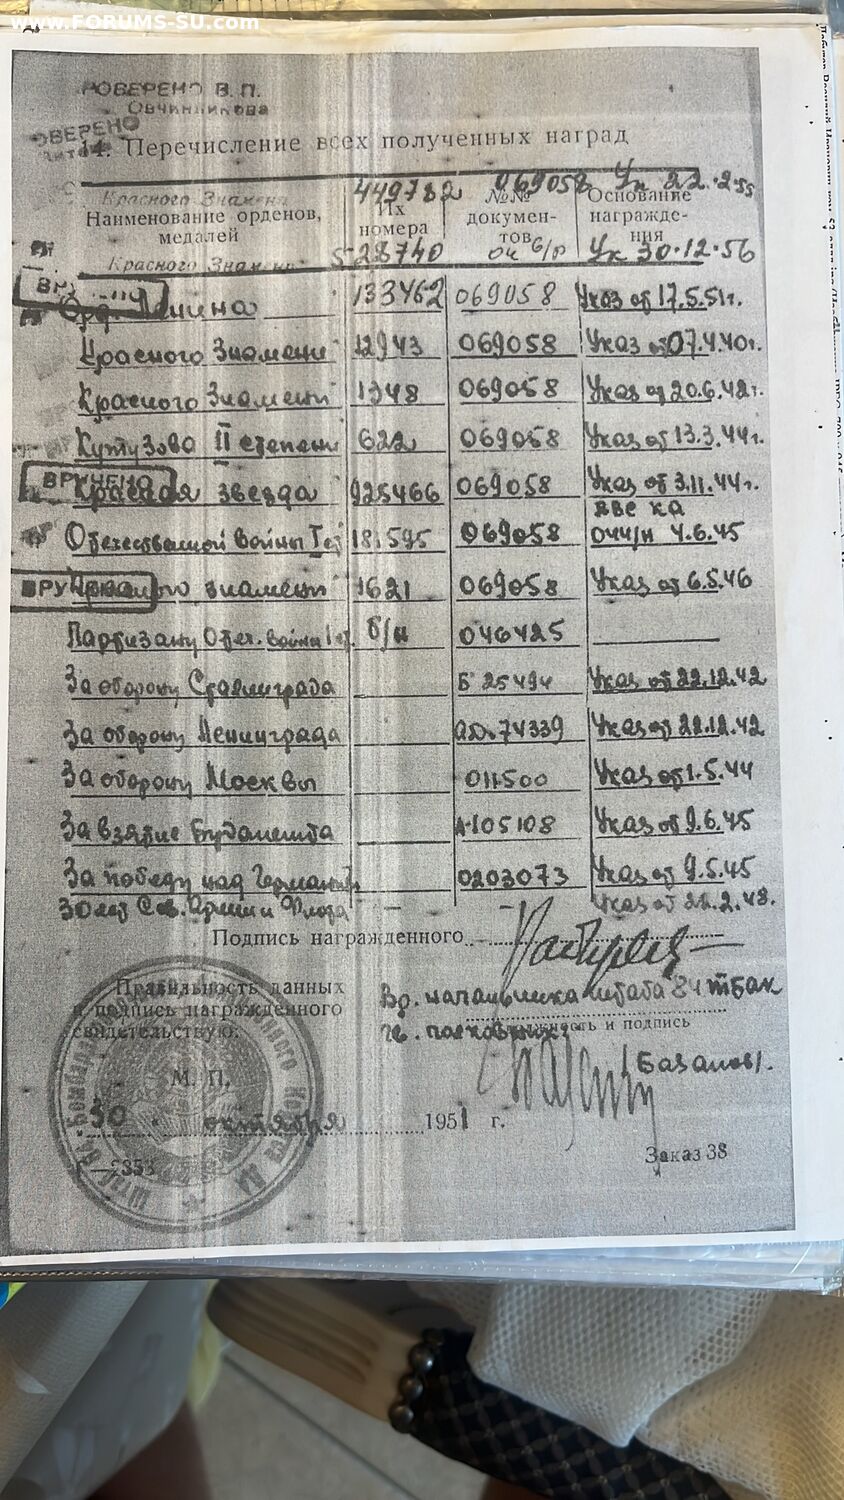 www.FORUMS-SU.com
РОВЕРЕНО В. П.
Овчинникова
ОВЕРЕНО
14. Перечисление всех полученных наград
Красного Знамени 449782 069058 Ук 22.2.55
Наименование орденов, медалей Их номера №№ докумен-тов Основание награжде-ния
Красного Знамени 528740 ок б/р Ук 30.12.56
133462 069058 Указ от 17.5.51г.
Красного Знамени 12943 069058 Указ от 07.4.40г.
Красного Знамени 1348 069058 Указ от 20.6.42г.
Кутузова II степени 622 069058 Указ от 13.3.44г.
ВРУЧЕНО
Красная звезда 925466 069058 Указ от 3.11.44г.
Отечественной войны I ст 181595 069058 4.6.45
знамени 1621 069058 Указ от 6.5.46
Партизану Отеч. войны I ст. б/н 046425
За оборону Сталинграда Б 25494 Указ от 22.12.42
За оборону Ленинграда 74339 Указ от 22.12.42
За оборону Москвы 011500 Указ от 1.5.44
За взятие Будапешта А-105108 Указ от 9.6.45
За победу над Германией 0203073 Указ от 9.5.45
30 лет Сов. Армии и Флота — Указ от 22.2.48.
Подпись награжденного
Правильность данных
и подпись награжденного
свидетельствую:
Вр. начальника штаба 84 тбак
гв. полковник
должность и подпись
/Базанов/.
М. П.
30 октября 1951 г.
Заказ 38